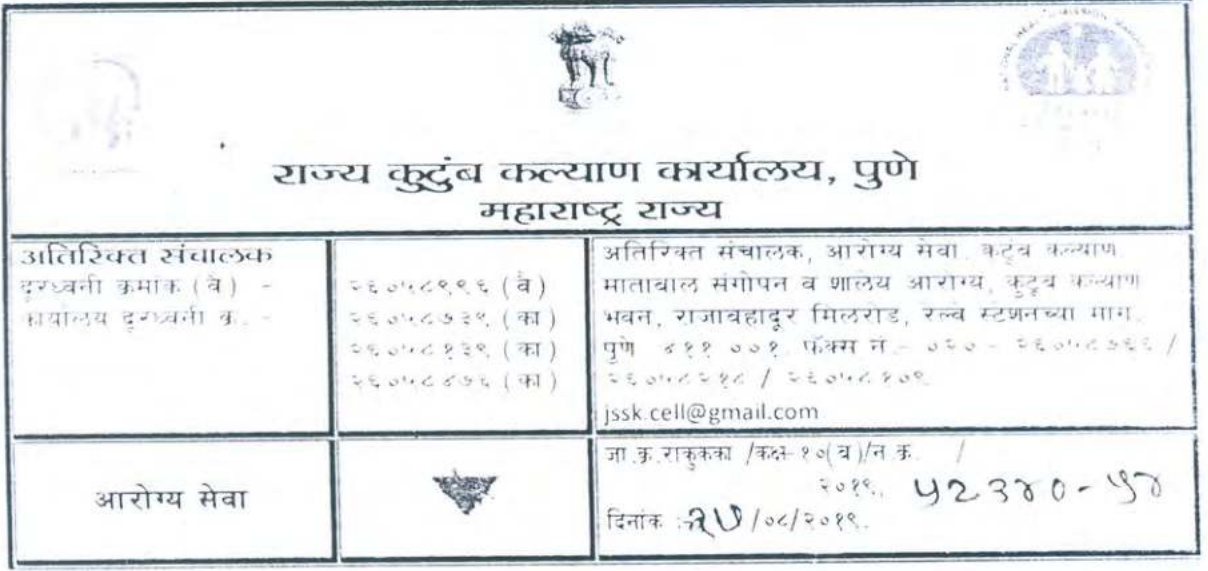 राज्य कुटुंब कल्याण कार्यालय, पुणे
महाराष्ट्र राज्य
अतिरिक्त संचालक
दूरध्वनी क्रमांक (वै) -
कार्यालय दूरध्वनी क्र. -
२६०५८९९६ (वै)
२६०५८७३९ (का)
२६०५८१३९ (का)
२६०५८४७६ (का)
अतिरिक्त संचालक, आरोग्य सेवा, कुटुंब कल्याण
माताबाल संगोपन व शालेय आरोग्य, कुटुंब कल्याण
भवन, राजाबहादूर मिलरोड, रेल्वे स्टेशनच्या मागे,
पुणे ४११ ००१. फॅक्स नं.- ०२० - २६०५८७६६ /
२६०५८२१८ / २६०५८१०९
jssk.cell@gmail.com
आरोग्य सेवा
जा.क्र.राकुकका /कक्ष-१०(ब)/न.क्र. /
२०१९, ५२३४०-५४
दिनांक : /०८/२०१९.